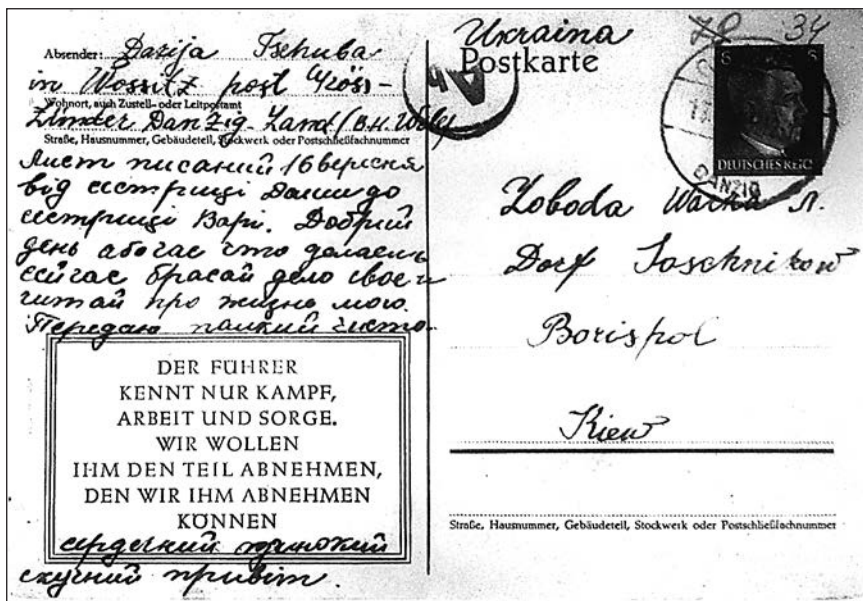 Absender: Darija Tschuba
in Wossitz post Gros-
Wohnort, auch Zustell- oder Leitpostamt
Zünder Danzig-Land
Straße, Hausnummer, Gebäudeteil, Stockwerk oder Postschließfachnummer
Лист писаний 16 вересня
від сестриці Даши до
сестриці Варі. Добрий
день або час что делаешь
сейчас брасай дело своє и
читай про жизнь мою.
Передаю палкий чисто-
DER FÜHRER
KENNT NUR KAMPF,
ARBEIT UND SORGE.
WIR WOLLEN
IHM DEN TEIL ABNEHMEN,
DEN WIR IHM ABNEHMEN
KÖNNEN
сердечний
скучний привіт.
Ukraina
Postkarte
34
Ab
6 6
DEUTSCHES REICH
DANZIG
Zoboda
Dorf
Borispol
Kiew
Straße, Hausnummer, Gebäudeteil, Stockwerk oder Postschließfachnummer